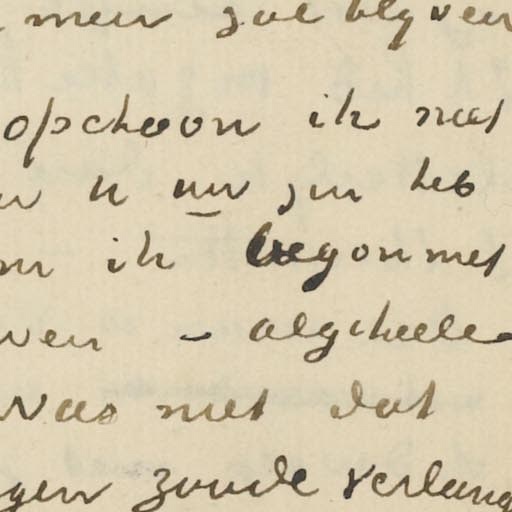 men zal blyven
opschoon ik niet
u uw zin heb
ik begon met
ven - algeheele
was niet dat
gen zoude verlang